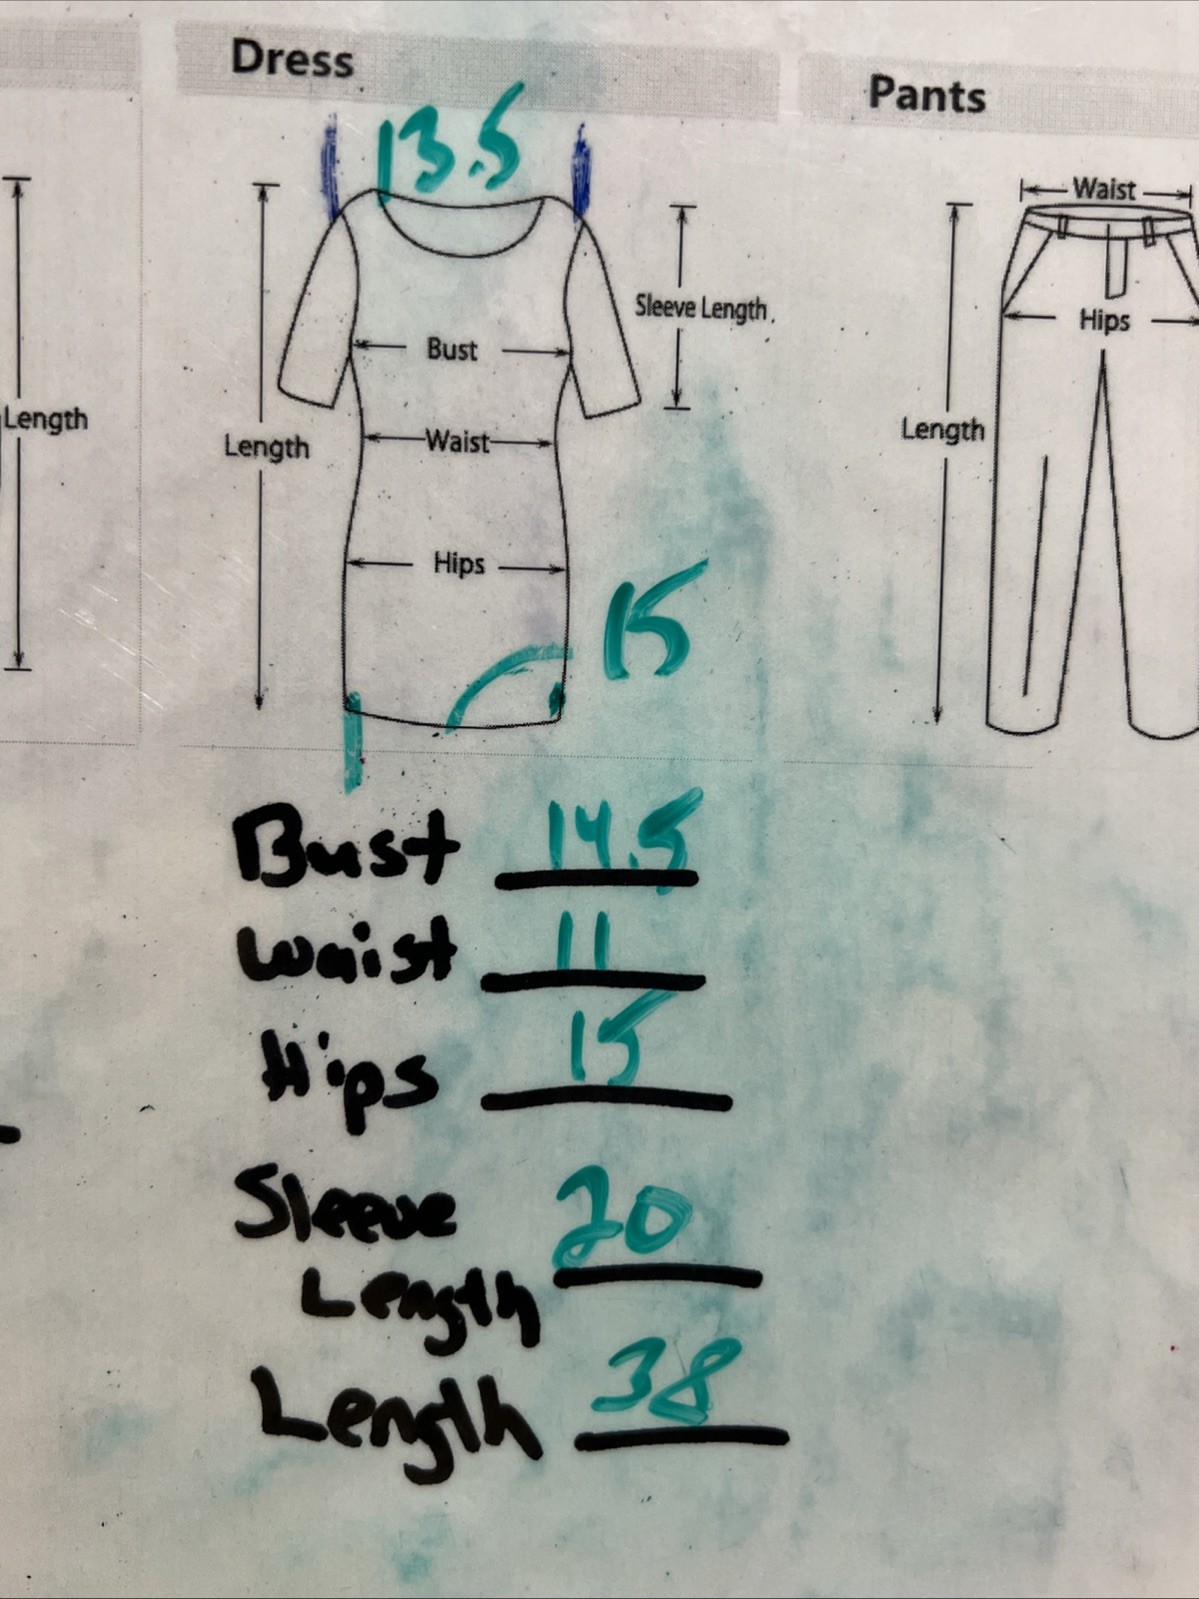 Dress
Pants
13.5
Waist
Sleeve Length
Hips
Bust
Length
Length
Waist
Length
Hips
15
Bust 14.5
Waist 11
Hips 15
Sleeve
Length 20
Length 38